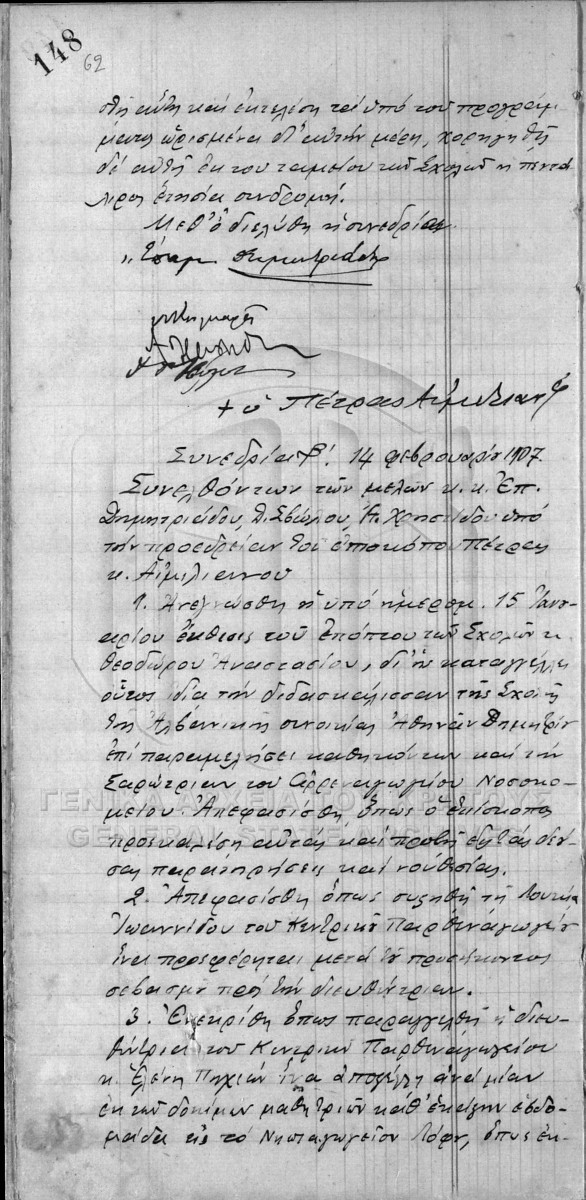 148
62
στῇ αὕτη καὶ ἐκτελέσῃ τὰ ὑπὸ τοῦ προγράμ-
ματος ὡρισμένα δι' αὐτὴν μέρη, χορηγηθῇ
δὲ αὐτῇ ἐκ τοῦ ταμείου τῶν Σχολῶν ἡ πεντά
λιρος ἐτησία συνδρομή.
Μεθ' ὃ διελύθη ἡ συνεδρία.
† ὁ Πέτρας Αἰμιλιανός
Συνεδρία 14 Φεβρουαρίου 1907
Συνελθόντων τῶν μελῶν κ. κ. Ἐπ.
Δημητριάδου, Δ. Σβώλου, Χρηστίδου ὑπὸ
τὴν προεδρείαν τοῦ ἐπισκόπου Πέτρας
κ. Αἰμιλιανοῦ
1. Ἀνεγνώσθη ἡ ὑπὸ ἡμερομ. 15 Ἰανου-
αρίου ἔκθεσις τοῦ Ἐπόπτου τῶν Σχολῶν κ.
Θεοδώρου Ἀναστασίου, δι' ἧς καταγγέλλει
οὗτος ἰδίᾳ τὴν διδασκάλισσαν τῆς Σχολῆς
τῆς Ἀλβανικῆς συνοικίας Ἀθηνᾶν Δημητρίου
ἐπὶ παραμελήσει καθηκόντων καὶ τὴν
Σαρώτριαν τοῦ Ἀρρεναγωγείου Νοσοκο-
μείου. Ἀπεφασίσθη ὅπως ὁ ἐπίσκοπος
προσκαλέσῃ αὐτὰς καὶ προβῇ εἰς τὰς δεού-
σας παρατηρήσεις καὶ νουθεσίας.
2. Ἀπεφασίσθη ὅπως συστηθῇ τῇ
Ἰωαννίδου τοῦ Κεντρικοῦ Παρθεναγωγείου
ἵνα προσφέρηται μετὰ τοῦ προσήκοντος
σεβασμοῦ πρὸς τὴν διευθύντριαν.
3. Ἐνεκρίθη ὅπως παραγγελθῇ ἡ διευ-
θύντρια τοῦ Κεντρικοῦ Παρθεναγωγείου
κ. Ἑλένη Πηχιών ἵνα ἀποστέλλῃ ἀνὰ μίαν
ἐκ τῶν δοκίμων μαθητριῶν καθ' ἑκάστην ἑβδο-
μάδα εἰς τὸ Νηπιαγωγεῖον Λόφου, ὅπως ἐκ-
ΓΕΝΙΚΑ ΑΡΧΕΙΑ ΤΟΥ ΚΡΑΤΟΥΣ
GENERAL STATE ARCHIVES